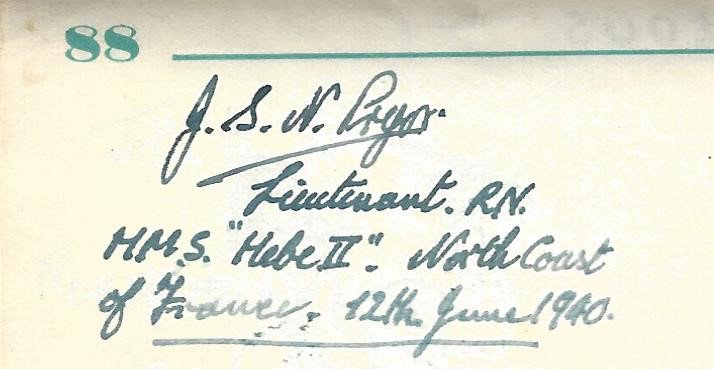 88
J. S. N. Pryor.
Lieutenant. RN.
H.M.S. "Hebe II". North Coast
of France. 12th June 1940.